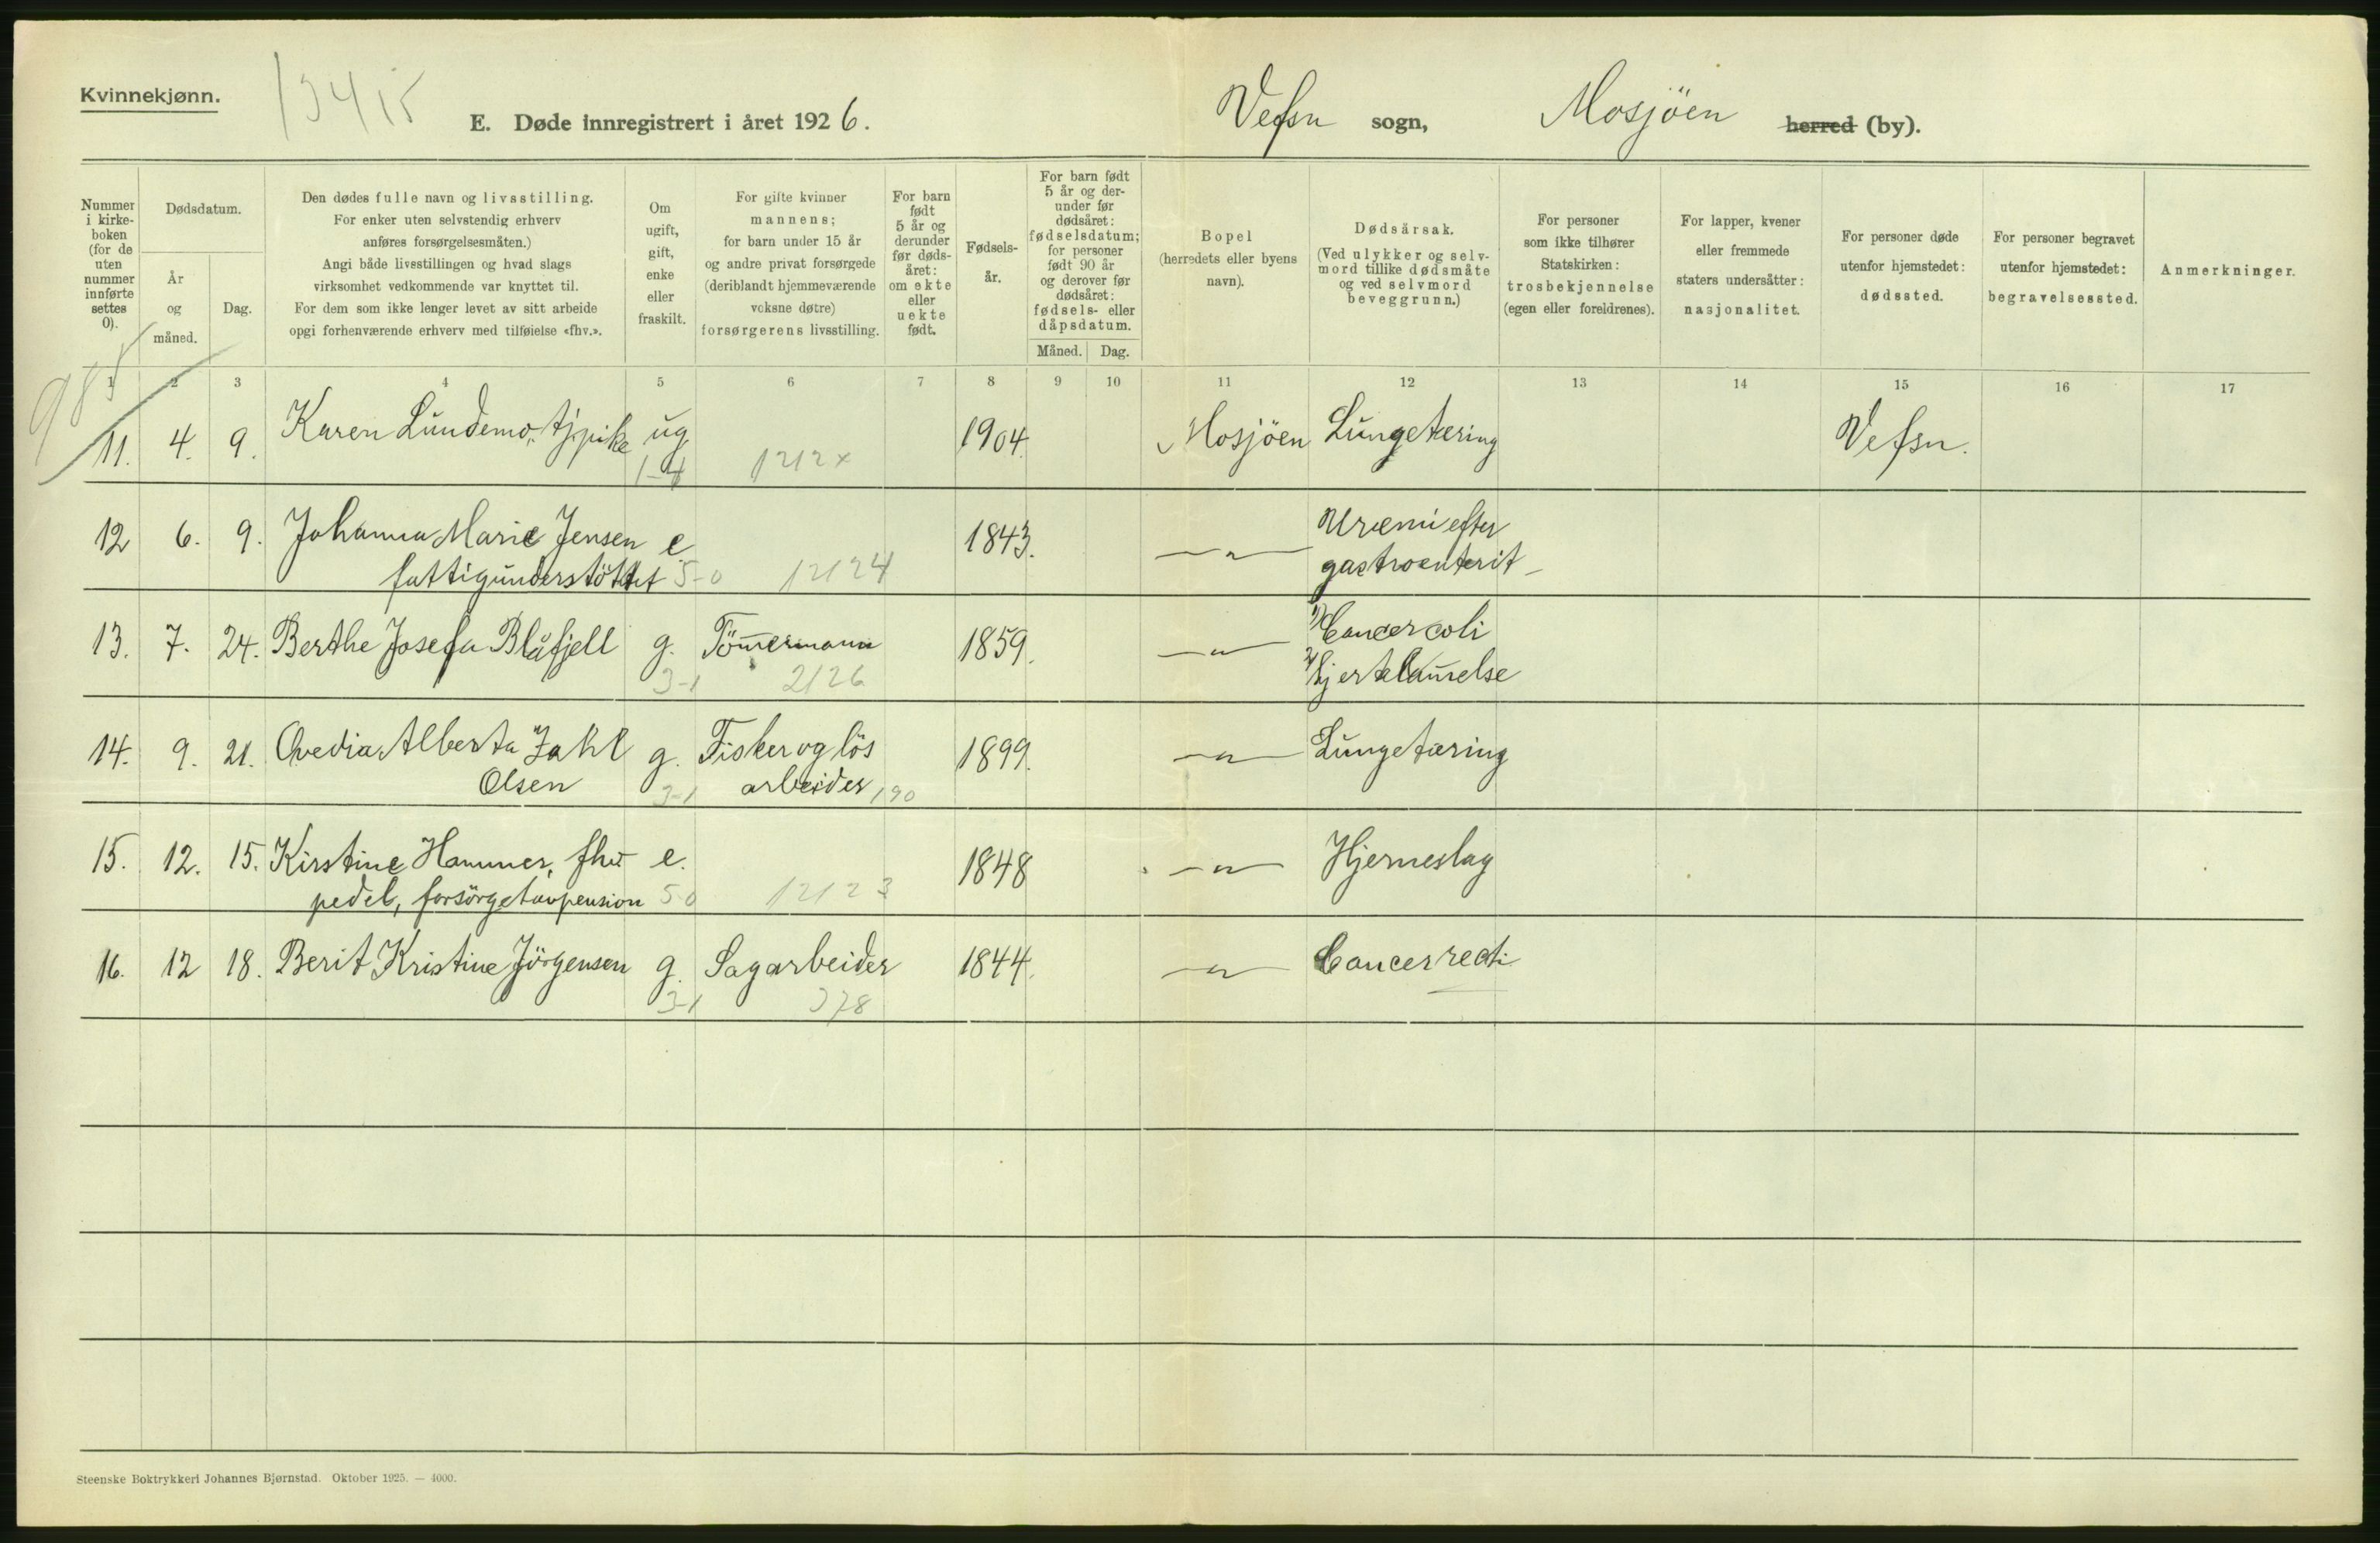 Kvinnekjønn.
E. Døde innregistrert i året 1926.
Vefsn sogn, Mosjöen herred (by).
Nummer i kirke- boken (for de uten nummer innførte settes 0).
Dødsdatum.
År og måned.
Dag.
Den dødes fulle navn og livsstilling.
For enker uten selvstendig erhverv
anføres forsørgelsesmåten.)
Angi både livsstillingen og hvad slags
virksomhet vedkommende var knyttet til.
For dem som ikke lenger levet av sitt arbeide
opgi forhenværende erhverv med tilføielse «fhv.».
Om ugift, gift, enke eller fraskilt.
For gifte kvinner
mannens;
for barn under 15 år
og andre privat forsørgede
(deriblandt hjemmeværende
voksne døtre)
forsørgerens livsstilling.
For barn født 5 år og derunder før døds- året: om ekte eller uekte født.
Fødsels- år.
For barn født 5 år og der- under før dødsåret: fødselsdatum; for personer født 90 år og derover før dødsåret: fødsels- eller dåpsdatum.
Måned. Dag.
Bopel
(herredets eller byens
navn).
Dødsårsak.
(Ved ulykker og selv-
mord tillike dødsmåte
og ved selvmord
beveggrunn.)
For personer
som ikke tilhører
Statskirken:
trosbekjennelse
(egen eller foreldrenes).
For lapper, kvener
eller fremmede
staters undersåtter:
nasjonalitet.
For personer døde
utenfor hjemstedet:
dødssted.
For personer begravet
utenfor hjemstedet:
begravelsessted.
Anmerkninger.
1 2 3 4 5 6 7 8 9 10 11 12 13 14 15 16 17
985
11. 4. 9. Karen Lundemo, tj.pike ug 1904. Mosjöen Lungetæring Vefsn.
1-4 1212x
12 6. 9. Johanna Marie Jensen e 1843. -"- Uræmi efter
fattigunderstöttet 5-0 12124 gastroenterit
13. 7. 24. Berthe Josefa Blåfjell g. Tömmermann 1859. -"- 1) Cancer coli
3-1 2126 2) Hjertelammelse
14. 9. 21. Ovedia Alberta Zahl g. Fisker og lös 1899. -"- Lungetæring
Olsen 3-1 arbeider 190
15. 12. 15. Kirstine Hammer, fhv e. 1848 -"- Hjerneslag
pedel, forsörget av pension 5-0 12123
16. 12 18. Berit Kristine Jörgensen g. Sagarbeider 1844. -"- Cancer recti
3-1 378
Steenske Boktrykkeri Johannes Bjørnstad. Oktober 1925. — 4000.